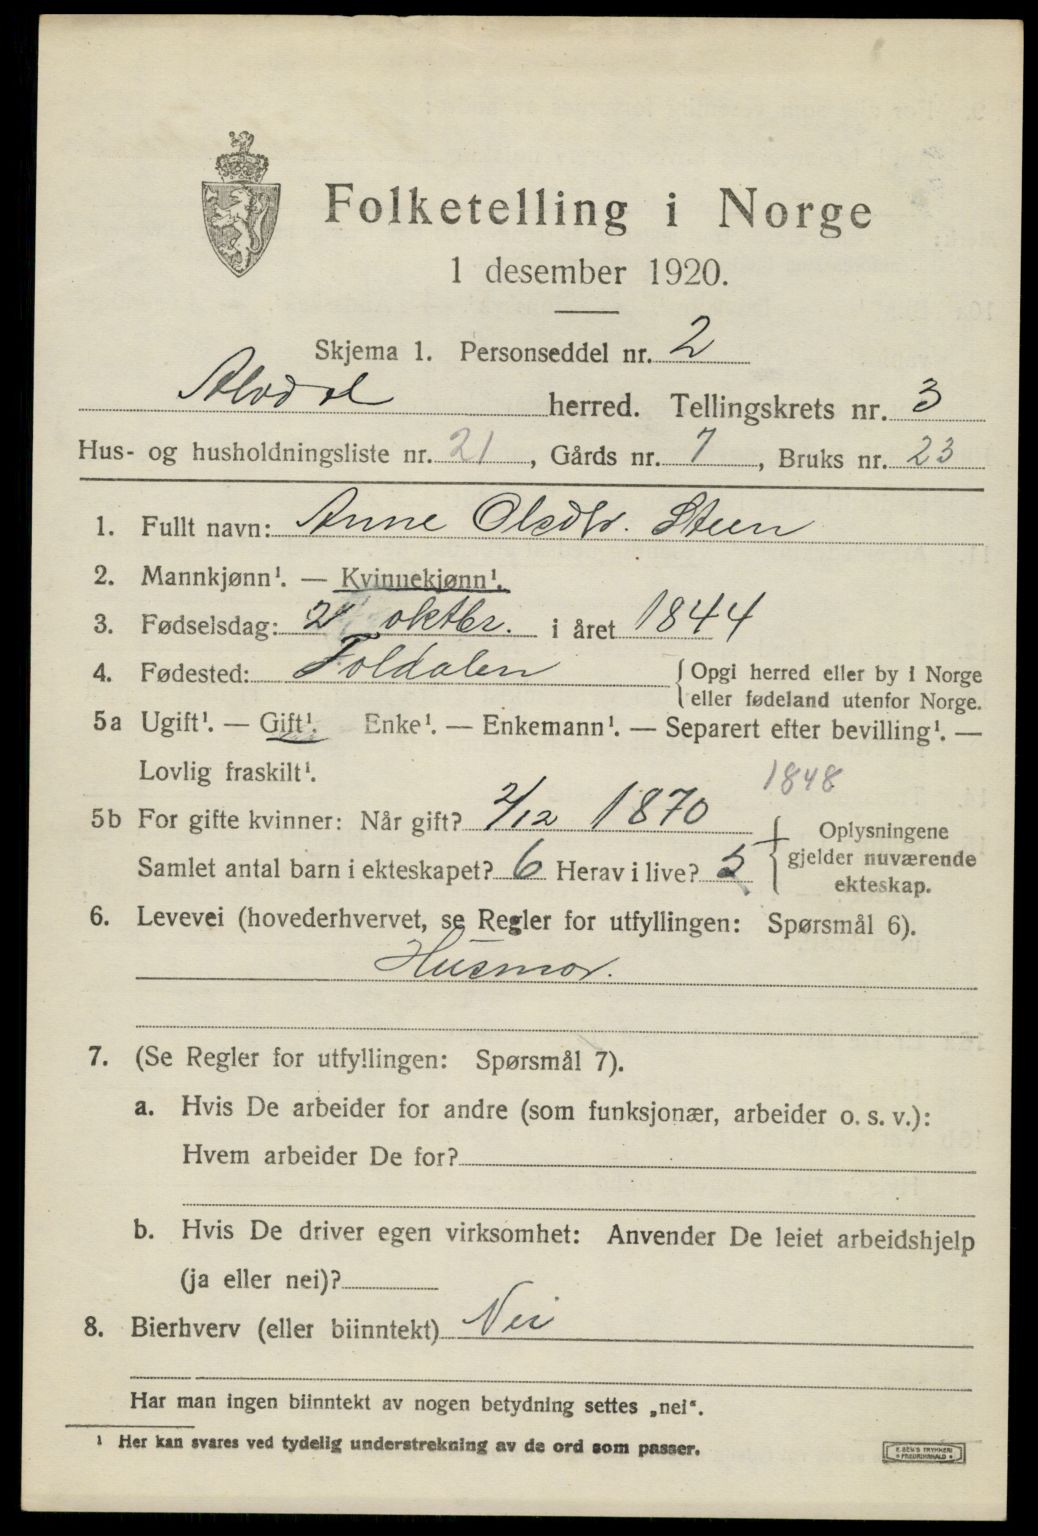 Folketelling i Norge
1 desember 1920.
Skjema 1. Personseddel nr. 2
Alvdal herred. Tellingskrets nr. 3
Hus- og husholdningsliste nr. 21, Gårds nr. 7, Bruks nr. 23
1. Fullt navn: Anne Olsdtr. Steen
2. Mannkjønn¹. — Kvinnekjønn¹.
3. Fødselsdag: 2 oktbr. i året 1844
4. Fødested: Foldalen { Opgi herred eller by i Norge
eller fødeland utenfor Norge.
5a Ugift¹. — Gift¹. Enke¹. — Enkemann¹. — Separert efter bevilling¹. —
Lovlig fraskilt¹.
1848
5b For gifte kvinner: Når gift? 2/12 1870
Samlet antal barn i ekteskapet? 6 Herav i live? 5
{ Oplysningene
gjelder nuværende
ekteskap.
6. Levevei (hovederhvervet, se Regler for utfyllingen: Spørsmål 6).
Husmor.
7. (Se Regler for utfyllingen: Spørsmål 7).
a. Hvis De arbeider for andre (som funksjonær, arbeider o. s. v.):
Hvem arbeider De for?
b. Hvis De driver egen virksomhet: Anvender De leiet arbeidshjelp
(ja eller nei)?
8. Bierhverv (eller biinntekt) Nei
Har man ingen biinntekt av nogen betydning settes „nei“.
¹ Her kan svares ved tydelig understrekning av de ord som passer.